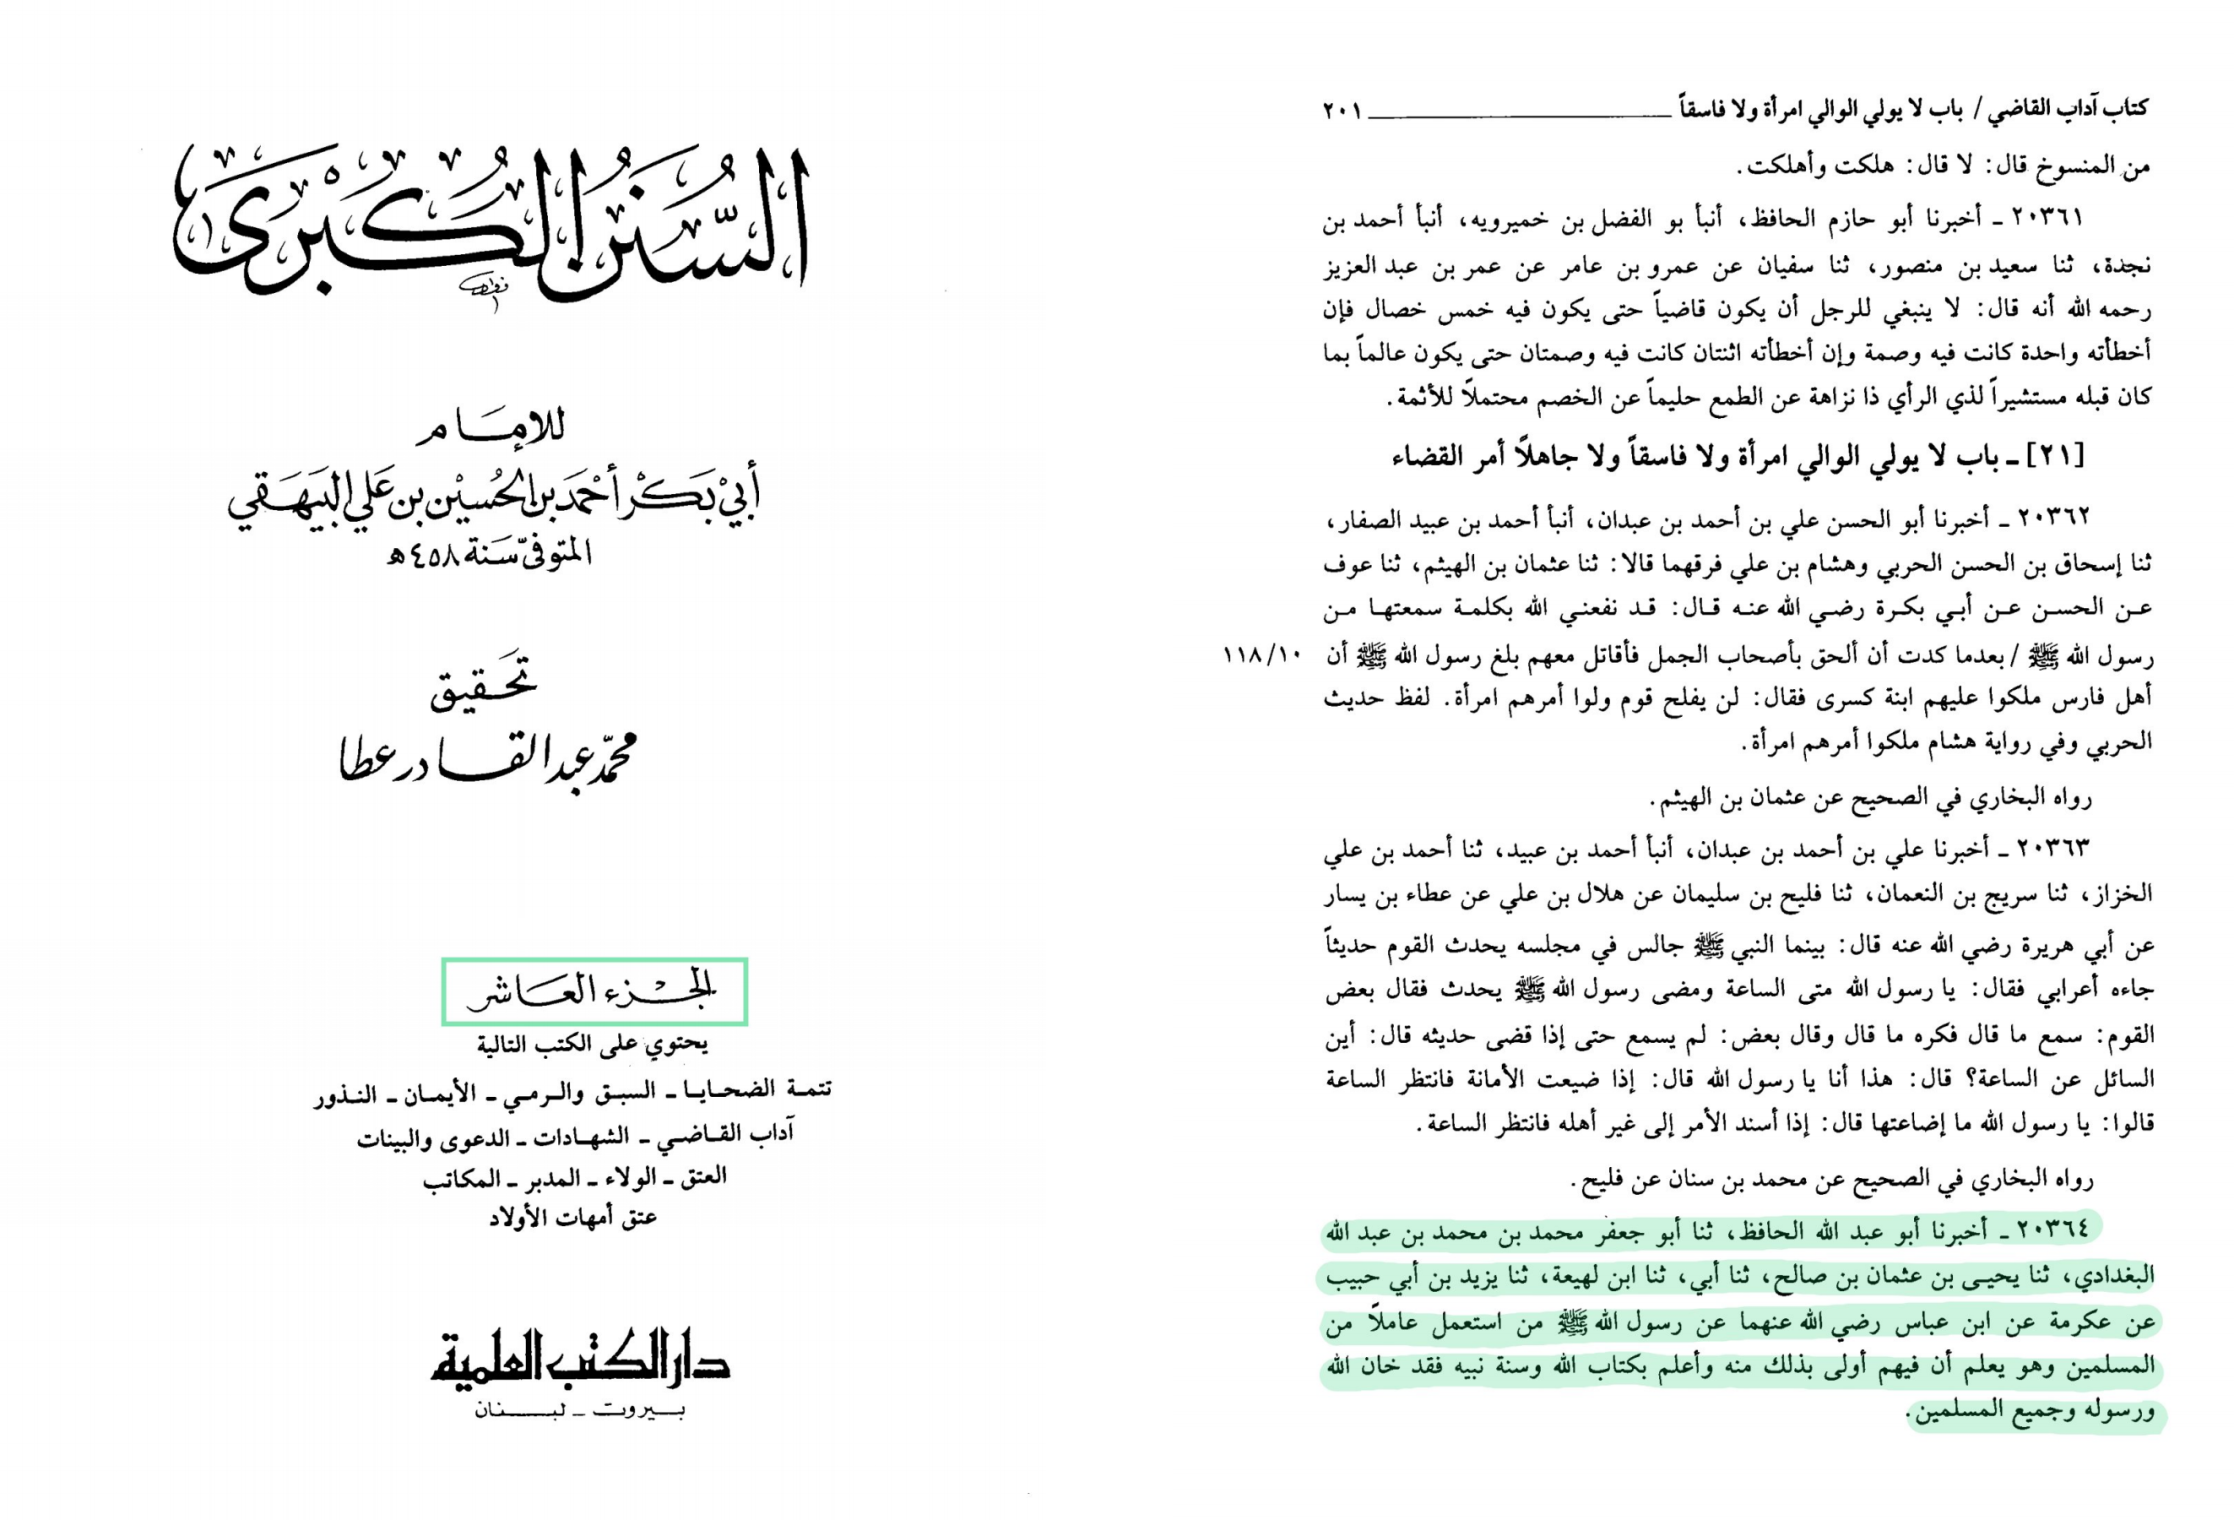 السنن الكبرى
للإمام
أبي بكر أحمد بن الحسين بن علي البيهقي
المتوفى سنة ٤٥٨ هـ
تحقيق
محمد عبد القادر عطا
الجزء العاشر
يحتوي على الكتب التالية
تتمة الضحايا ـ السبق والرمي ـ الأيمان ـ النذور
آداب القاضي ـ الشهادات ـ الدعوى والبينات
العتق ـ الولاء ـ المدبر ـ المكاتب
عتق أمهات الأولاد
دار الكتب العلمية
بيروت ـ لبنان
كتاب آداب القاضي / باب لا يولي الوالي امرأة ولا فاسقاً ٢٠١
من المنسوخ قال: لا قال: هلكت وأهلكت.
٢٠٣٦١ ـ أخبرنا أبو حازم الحافظ، أنبأ بو الفضل بن خميرويه، أنبأ أحمد بن
نجدة، ثنا سعيد بن منصور، ثنا سفيان عن عمرو بن عامر عن عمر بن عبد العزيز
رحمه الله أنه قال: لا ينبغي للرجل أن يكون قاضياً حتى يكون فيه خمس خصال فإن
أخطأته واحدة كانت فيه وصمة وإن أخطأته اثنتان كانت فيه وصمتان حتى يكون عالماً بما
كان قبله مستشيراً لذي الرأي ذا نزاهة عن الطمع حليماً عن الخصم محتملاً للأثمة.
[٢١] ـ باب لا يولي الوالي امرأة ولا فاسقاً ولا جاهلاً أمر القضاء
٢٠٣٦٢ ـ أخبرنا أبو الحسن علي بن أحمد بن عبدان، أنبأ أحمد بن عبيد الصفار،
ثنا إسحاق بن الحسن الحربي وهشام بن علي فرقهما قالا: ثنا عثمان بن الهيثم، ثنا عوف
عن الحسن عن أبي بكرة رضي الله عنه قال: قد نفعني الله بكلمة سمعتها من
رسول الله ﷺ / بعدما كدت أن ألحق بأصحاب الجمل فأقاتل معهم بلغ رسول الله ﷺ أن ١١٨/١٠
أهل فارس ملكوا عليهم ابنة كسرى فقال: لن يفلح قوم ولوا أمرهم امرأة. لفظ حديث
الحربي وفي رواية هشام ملكوا أمرهم امرأة.
رواه البخاري في الصحيح عن عثمان بن الهيثم.
٢٠٣٦٣ ـ أخبرنا علي بن أحمد بن عبدان، أنبأ أحمد بن عبيد، ثنا أحمد بن علي
الخزاز، ثنا سريج بن النعمان، ثنا فليح بن سليمان عن هلال بن علي عن عطاء بن يسار
عن أبي هريرة رضي الله عنه قال: بينما النبي ﷺ جالس في مجلسه يحدث القوم حديثاً
جاءه أعرابي فقال: يا رسول الله متى الساعة ومضى رسول الله ﷺ يحدث فقال بعض
القوم: سمع ما قال فكره ما قال وقال بعض: لم يسمع حتى إذا قضى حديثه قال: أين
السائل عن الساعة؟ قال: هذا أنا يا رسول الله قال: إذا ضيعت الأمانة فانتظر الساعة
قالوا: يا رسول الله ما إضاعتها قال: إذا أسند الأمر إلى غير أهله فانتظر الساعة.
رواه البخاري في الصحيح عن محمد بن سنان عن فليح.
٢٠٣٦٤ ـ أخبرنا أبو عبد الله الحافظ، ثنا أبو جعفر محمد بن محمد بن عبد الله
البغدادي، ثنا يحيى بن عثمان بن صالح، ثنا أبي، ثنا ابن لهيعة، ثنا يزيد بن أبي حبيب
عن عكرمة عن ابن عباس رضي الله عنهما عن رسول الله ﷺ من استعمل عاملاً من
المسلمين وهو يعلم أن فيهم أولى بذلك منه وأعلم بكتاب الله وسنة نبيه فقد خان الله
ورسوله وجميع المسلمين.